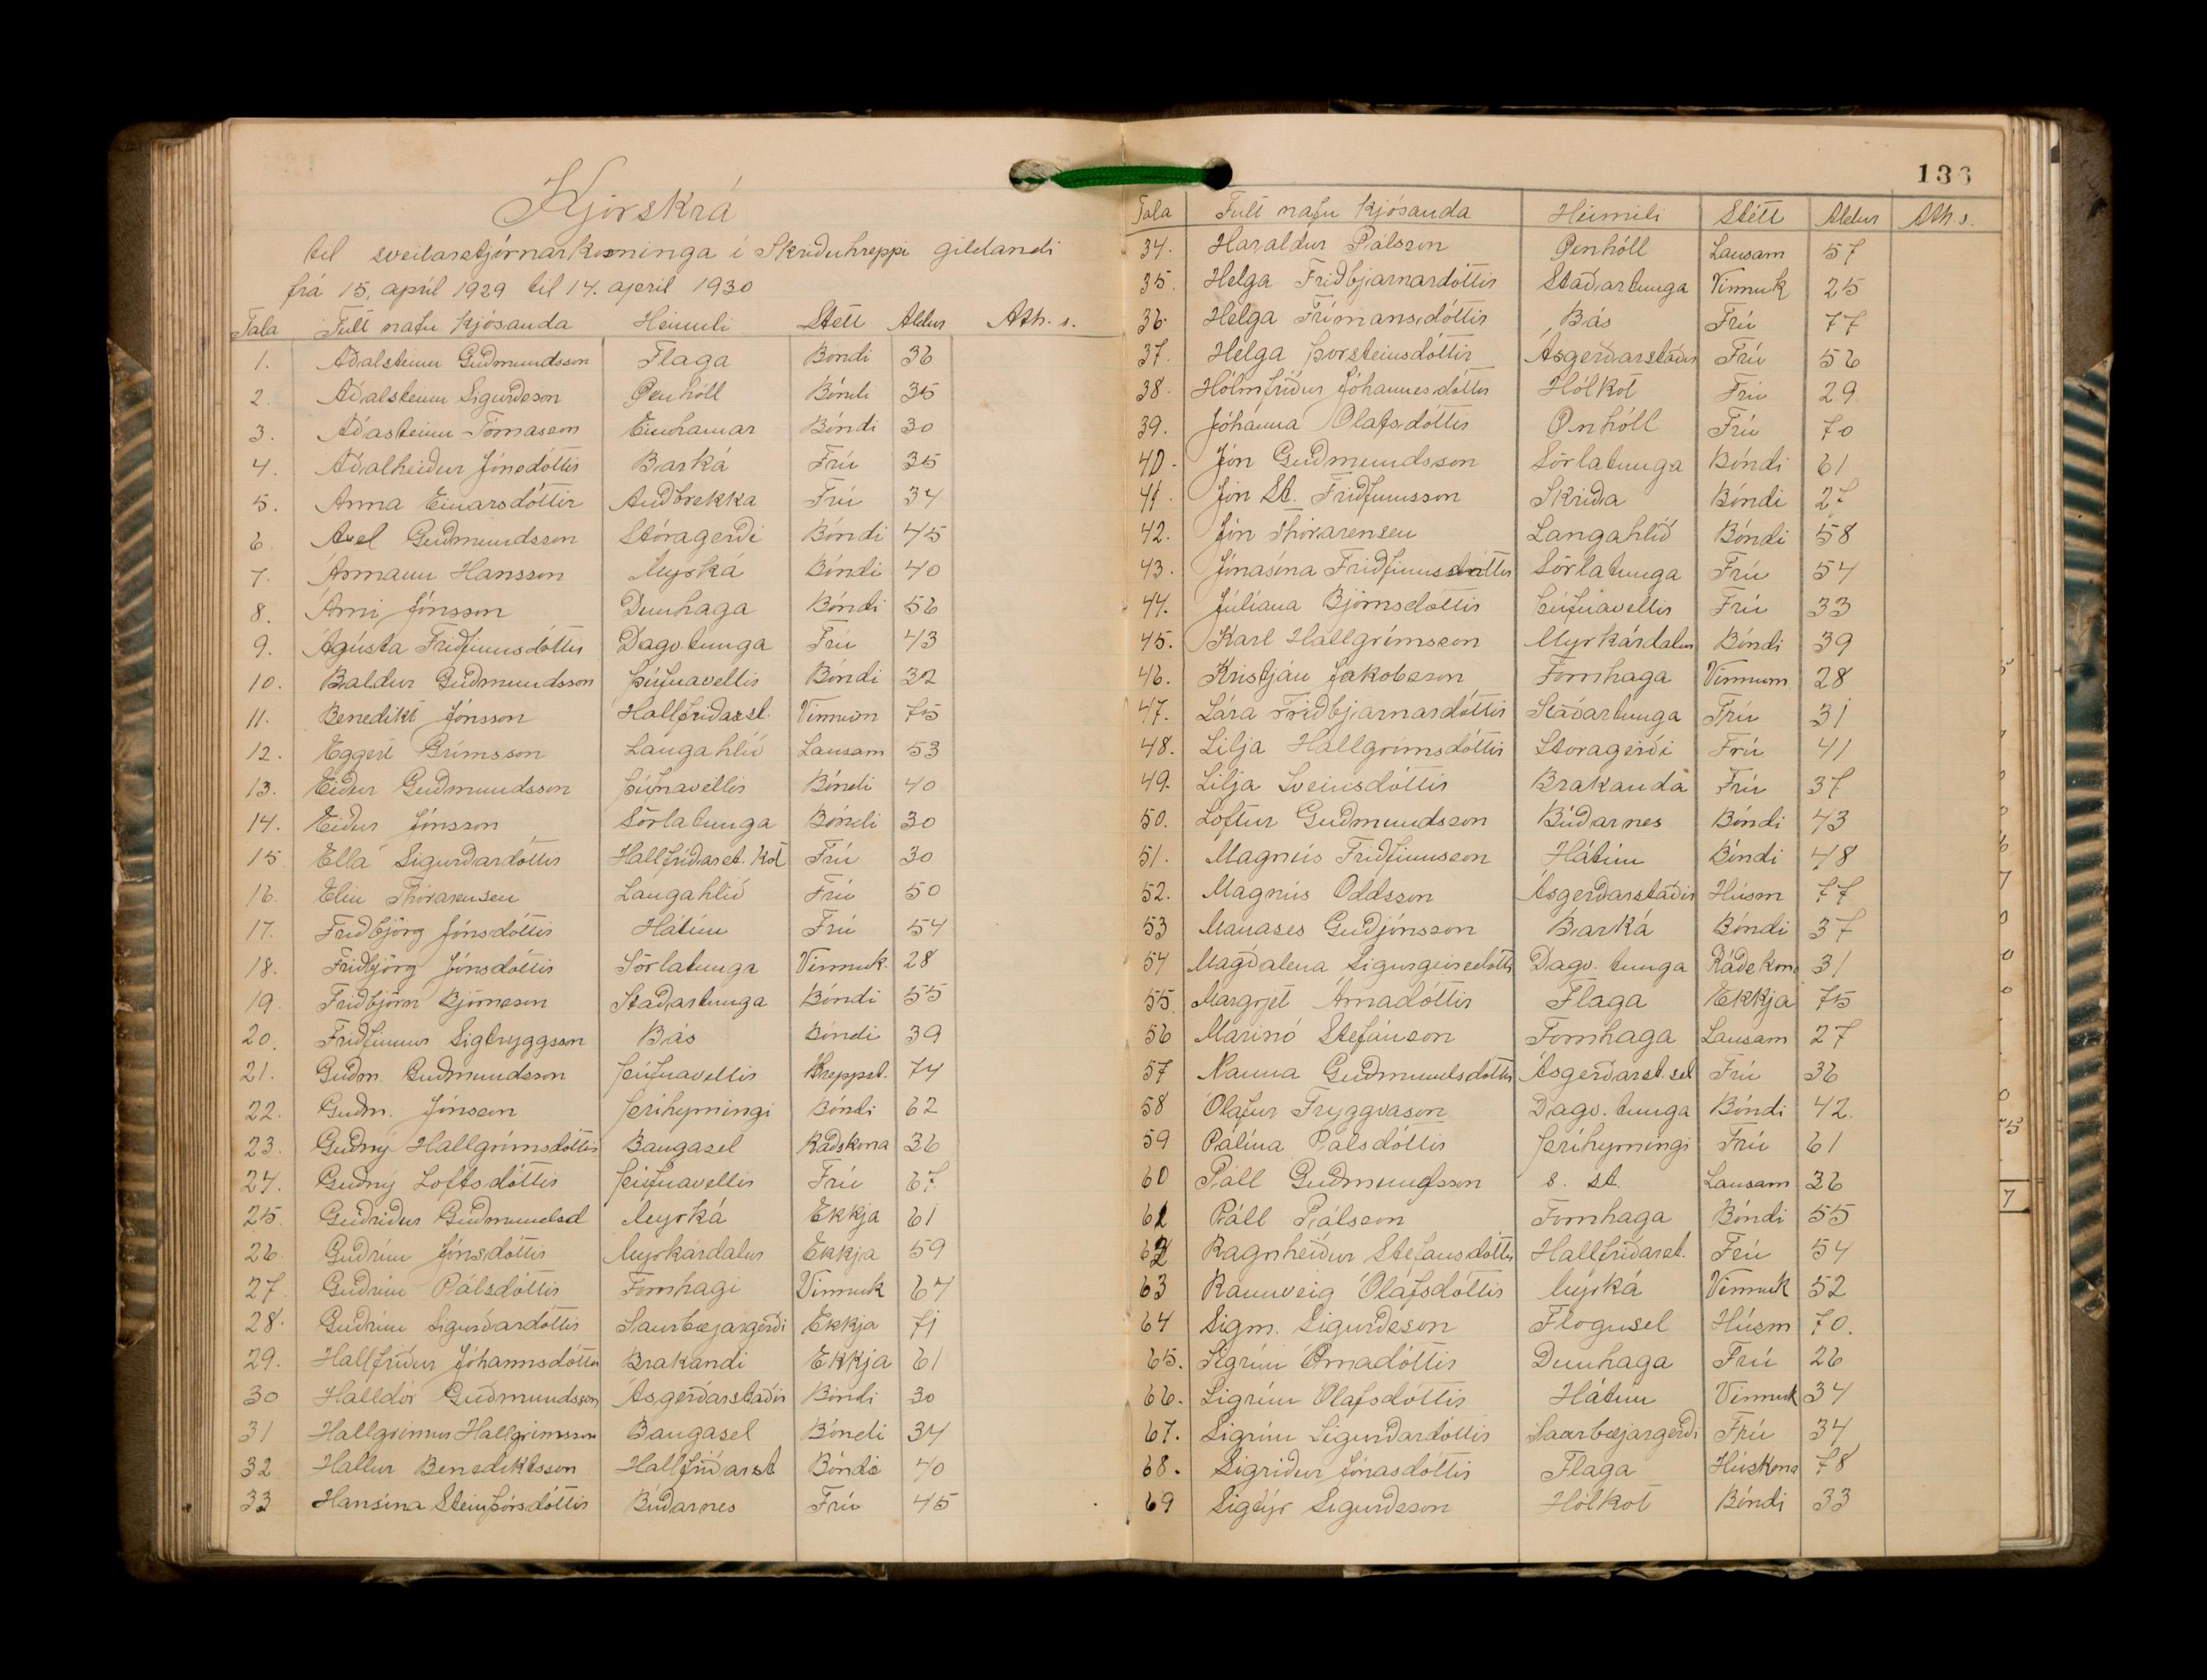 Kjörskrá
til sveitarstjórnarkosninga í Skriðuhreppi gildandi
frá 15. apríl 1929 til 14. apríl 1930
Tala Fult nafn kjósanda Heimili Stétt Aldur Ath.s.
1. Aðalsteinn Guðmundsson Flaga Bóndi 36
2. Aðalsteinn Sigurðsson Öxnhóll Bóndi 35
3. Aðasteinn Tómasson Einhamar Bóndi 30
4. Aðalheiður Jónsdóttir Barká Frú 35
5. Anna Einarsdóttir Auðbrekka Frú 34
6. Axel Guðmundsson Stóragerði Bóndi 45
7. Ármann Hansson Myrká Bóndi 40
8. Árni Jónsson Dunhaga Bóndi 56
9. Ágústa Friðfinnsdóttir Dagv.tunga Frú 43
10. Baldur Guðmundsson Þúfnavellir Bóndi 32
11. Benedikt Jónsson Hallfríðarst. Vinnum 75
12. Eggert Grímsson Langahlíð Lausam 53
13. Eiður Guðmundsson Þúfnavellir Bóndi 40
14. Eiður Jónsson Sörlatunga Bóndi 30
15 Ella Sigurðardóttir Hallfríðarst. kot Frú 30
16. Elín Thórarensen Langahlíð Frú 50
17. Friðbjörg Jónsdóttir Hátún Frú 54
18. Friðbjörg Jónsdóttir Sörlatunga Vinnuk. 28
19. Friðbjörn Björnsson Staðartunga Bóndi 55
20. Friðfinnur Sigtryggsson Bás Bóndi 39
21. Guðm. Guðmundsson Þúfnavellir Hreppst. 74
22. Guðm. Jónsson Þríhyrningi Bóndi 62
23. Guðný Hallgrímsdóttir Baugasel Ráðskona 36
24. Guðný Loftsdóttir Þúfnavellir Frú 67
25. Guðríður Guðmundsd Myrká Ekkja 61
26. Guðrún Jónsdóttir Myrkárdalur Ekkja 59
27. Guðrún Pálsdóttir Fornhagi Vinnuk 64
28. Guðrún Sigurðardóttir Saurbæjargerði Ekkja 71
29. Hallfríður Jóhannsdóttir Brakandi Ekkja 61
30 Halldór Guðmundsson Ásgerðarstaðir Bóndi 30
31 Hallgrímur Hallgrímsson Baugasel Bóndi 34
32 Hallur Benediktsson Hallfríðarst Bóndi 40
33 Hansína Steinþórsdóttir Búðarnes Frú 45
133
Tala Fult nafn kjósanda Heimili Stétt Aldur Ath.s.
34. Haraldur Pálsson Öxnhóll Lausam 57
35. Helga Friðbjarnardóttir Staðartunga Vinnuk 25
36. Helga Frímansdóttir Bás Frú 77
37. Helga Þorsteinsdóttir Ásgerðarstaðir Frú 56
38. Hólmfríður Jóhannesdóttir Hólkot Frú 29
39. Jóhanna Ólafsdóttir Öxnhóll Frú 70
40. Jón Guðmundsson Sörlatunga Bóndi 61
41. Jón St. Friðfinnsson Skriða Bóndi 27
42. Jón Thórarensen Langahlíð Bóndi 58
43. Jónasína Friðfinnsdóttir Sörlatunga Frú 54
44. Júlíana Björnsdóttir Þúfnavellir Frú 33
45. Karl Hallgrímsson Myrkárdalur Bóndi 39
46. Kristján Jakobsson Fornhaga Vinnum 28
47. Lára Friðbjarnardóttir Staðartunga Frú 31
48. Lilja Hallgrímsdóttir Stóragerði Frú 41
49. Lilja Sveinsdóttir Brakanda Frú 37
50. Loftur Guðmundsson Búðarnes Bóndi 43
51. Magnús Friðfinnsson Hátún Bóndi 48
52. Magnús Oddsson Ásgerðarstaðir Húsm 77
53 Manases Guðjónsson Barká Bóndi 37
54 Magðalena Sigurgeirsdóttir Dagv. tunga Ráðskona 31
55. Margrjet Árnadóttir Flaga Ekkja 75
56 Marinó Stefánsson Fornhaga Lausam 27
57 Nanna Guðmundsdóttir Ásgerðarst.sel Frú 36
58 Ólafur Tryggvason Dagv. tunga Bóndi 42.
59 Pálína Pálsdóttir Þríhyrningi Frú 61
60 Páll Guðmundsson s. st. Lausam 36
61 Páll Pálsson Fornhaga Bóndi 55
62 Ragnheiður Stefánsdóttir Hallfríðarst. Frú 54
63 Rannveig Ólafsdóttir Myrká Vinnuk 52
64 Sigm. Sigurðsson Flögusel Húsm 70.
65. Sigrún Árnadóttir Dunhaga Frú 26
66. Sigrún Ólafsdóttir Hátún Vinnuk 34
67. Sigrún Sigurðardóttir Saurbæjargerði Frú 34
68. Sigríður Jónasdóttir Flaga Húskona 78
69 Sigtýr Sigurðsson Hólkot Bóndi 33